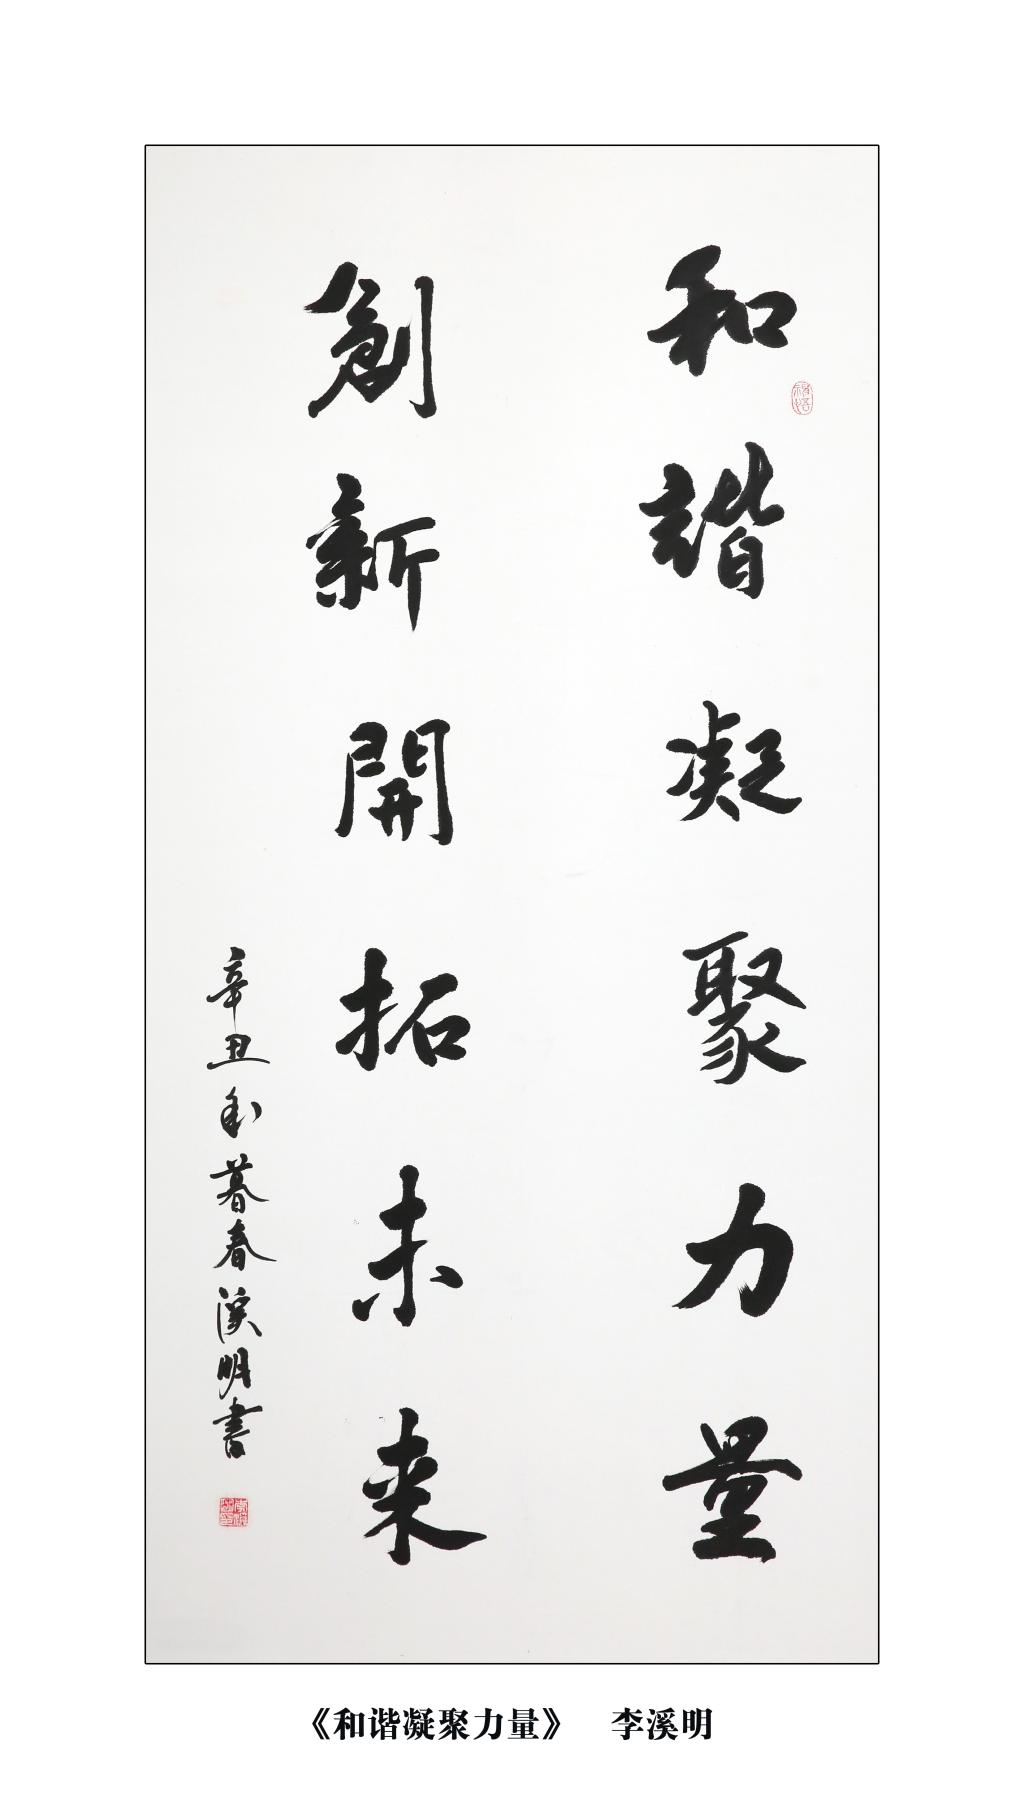 和諧凝聚力量
創新開拓未来
辛丑年暮春溪明書
《和谐凝聚力量》 李溪明